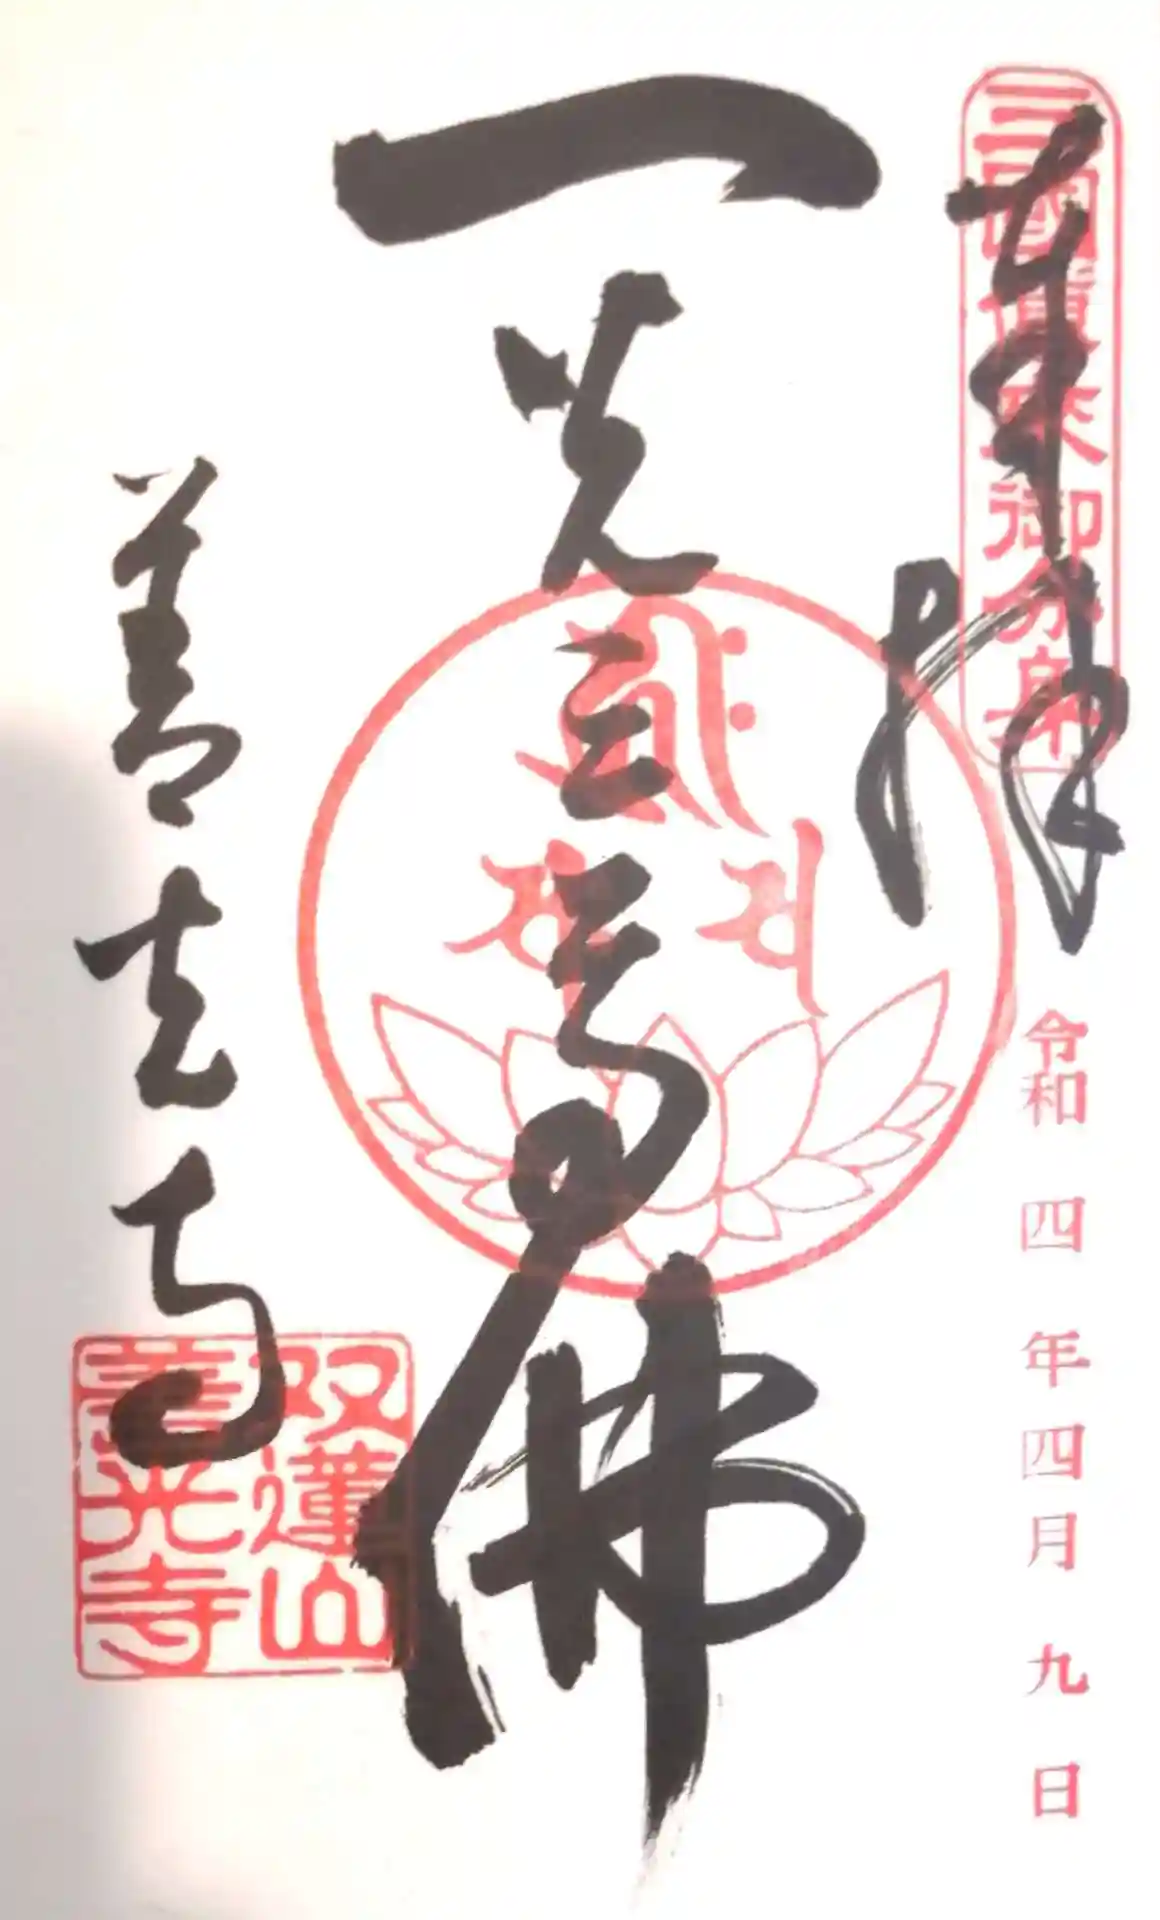 奉拝
三國傳来御分身
令和 四 年 四月 九 日
一光三尊佛
善光寺
双蓮山
善光寺